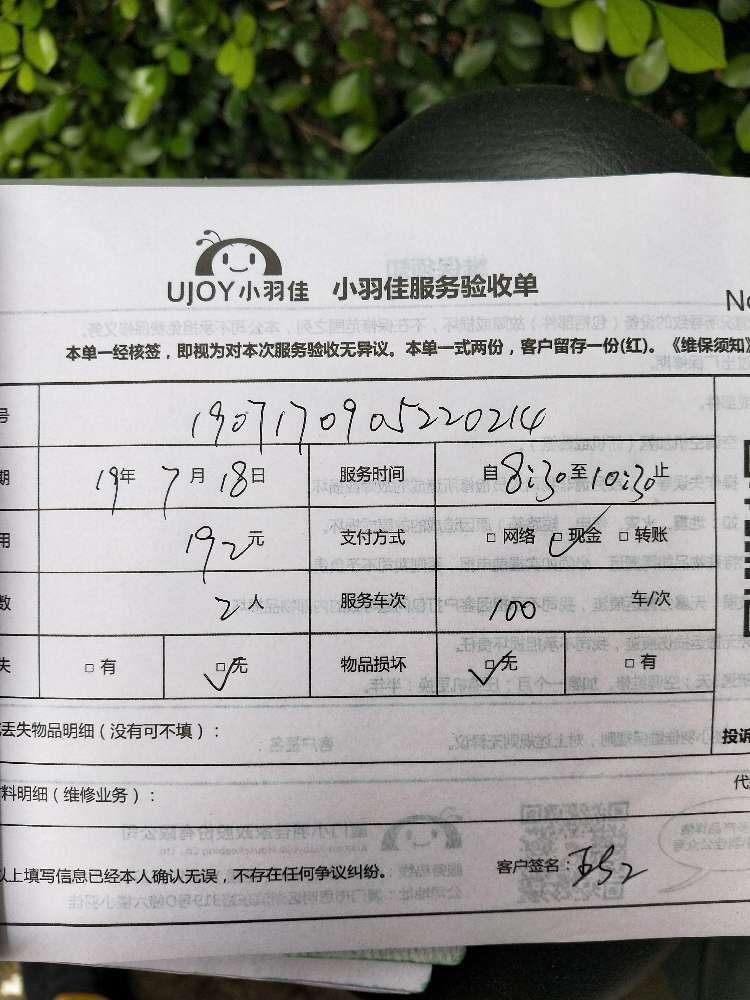 UJOY小羽佳 小羽佳服务验收单
No
本单一经核签，即视为对本次服务验收无异议。本单一式两份，客户留存一份(红)。《维保须知》
号 1907170905220214
期 19年 7月 18日 服务时间 自8:30至10:30止
用 192元 支付方式 □网络 □现金 □转账
数 2人 服务车次 100 车/次
失 □有 □无 物品损坏 □无 □有
丢失物品明细（没有可不填）：
投诉
料明细（维修业务）：
代
以上填写信息已经本人确认无误，不存在任何争议纠纷。 客户签名：